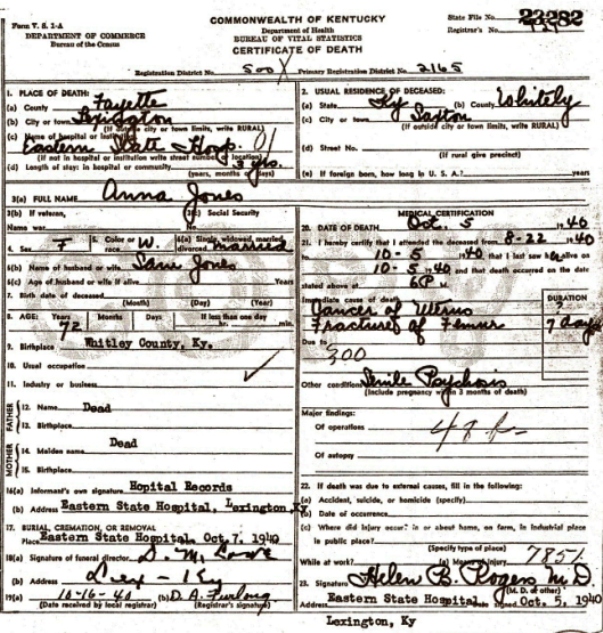 Form V. S. 1-A
DEPARTMENT OF COMMERCE
Bureau of the Census
COMMONWEALTH OF KENTUCKY
Department of Health
BUREAU OF VITAL STATISTICS
CERTIFICATE OF DEATH
State File No. 23282
Registrar's No.
Registration District No. 500 X Primary Registration District No. 2165
1. PLACE OF DEATH:
(a) County Fayette
(b) City or town Lexington
(If outside city or town limits, write RURAL)
(c) Name of hospital or institution
Eastern State Hosp. 01
(If not in hospital or institution write street number or location)
(d) Length of stay: in hospital or community 3 yrs.
(years, months or days)
2. USUAL RESIDENCE OF DECEASED:
(a) State Ky (b) County Whitely
(c) City or town Saxton
(If outside city or town limits, write RURAL)
(d) Street No.
(If rural give precinct)
(e) If foreign born, how long in U. S. A.? years
3(a) FULL NAME Anna Jones
3(b) If veteran, 3(c) Social Security
Name war No.
4. Sex F 5. Color or race W. 6(a) Single, widowed, married, divorced married
6(b) Name of husband or wife Sam Jones
6(c) Age of husband or wife if alive Years
7. Birth date of deceased
(Month) (Day) (Year)
8. AGE: Years Months Days If less than one day
72 hr. min.
9. Birthplace Whitley County, Ky.
10. Usual occupation
11. Industry or business
FATHER
12. Name Dead
13. Birthplace
MOTHER
14. Maiden name Dead
15. Birthplace
16(a) Informant's own signature Hopital Records
(b) Address Eastern State Hospital, Lexington, Ky
17. BURIAL, CREMATION, OR REMOVAL
Place Eastern State Hospital Oct. 7. 1940
18(a) Signature of funeral director D. M. Lowe
(b) Address Lex - Ky
19(a) 10-16-40 (b) D. A. Furlong
(Date received by local registrar) (Registrar's signature)
MEDICAL CERTIFICATION
20. DATE OF DEATH Oct. 5 1940
21. I hereby certify that I attended the deceased from 8-22 1940
to 10-5 1940 that I last saw her alive on
10-5 1940 and that death occurred on the date
stated above at 6P M.
Immediate cause of death DURATION
Cancer of Uterus ?
Fracture of Femur 7 days
Due to
300
Other conditions Senile Psychosis
(Include pregnancy within 3 months of death)
Major findings:
Of operations
Of autopsy
22. If death was due to external causes, fill in the following:
(a) Accident, suicide, or homicide (specify)
(b) Date of occurrence
(c) Where did injury occur? in or about home, on farm, in industrial place
in public place?
(Specify type of place)
While at work? (e) Means of injury 7851
23. Signature Helen B. Rogers M.D.
(M. D. or other)
Address Eastern State Hospital signed Oct. 5, 1940
Lexington, Ky